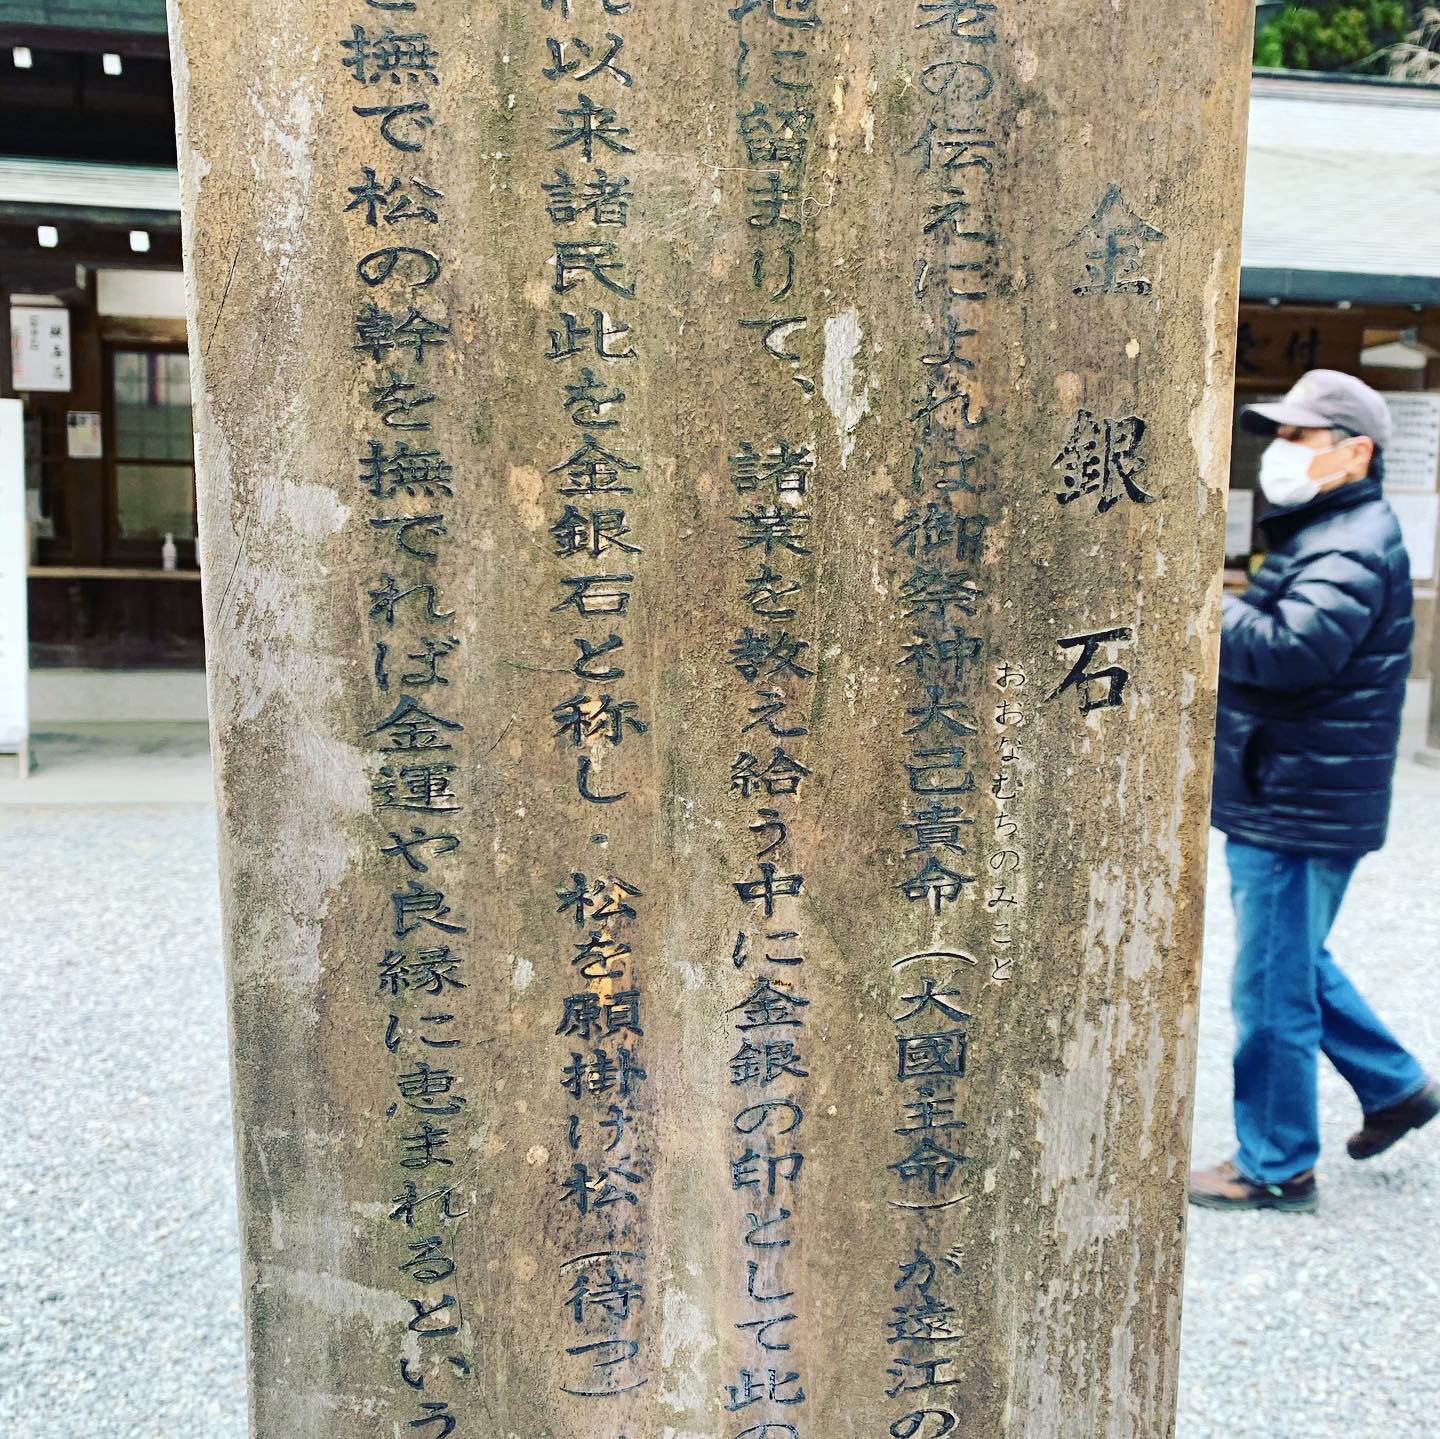 金銀石
老の伝えによれば御祭神大己貴命（大國主命）が遠江の
おおなむちのみこと
地に留まりて、諸業を教え給う中に金銀の印として此の
れ以来諸民此を金銀石と称し・松を願掛け松（待つ）
と撫で松の幹を撫でれば金運や良縁に恵まれるという
受付